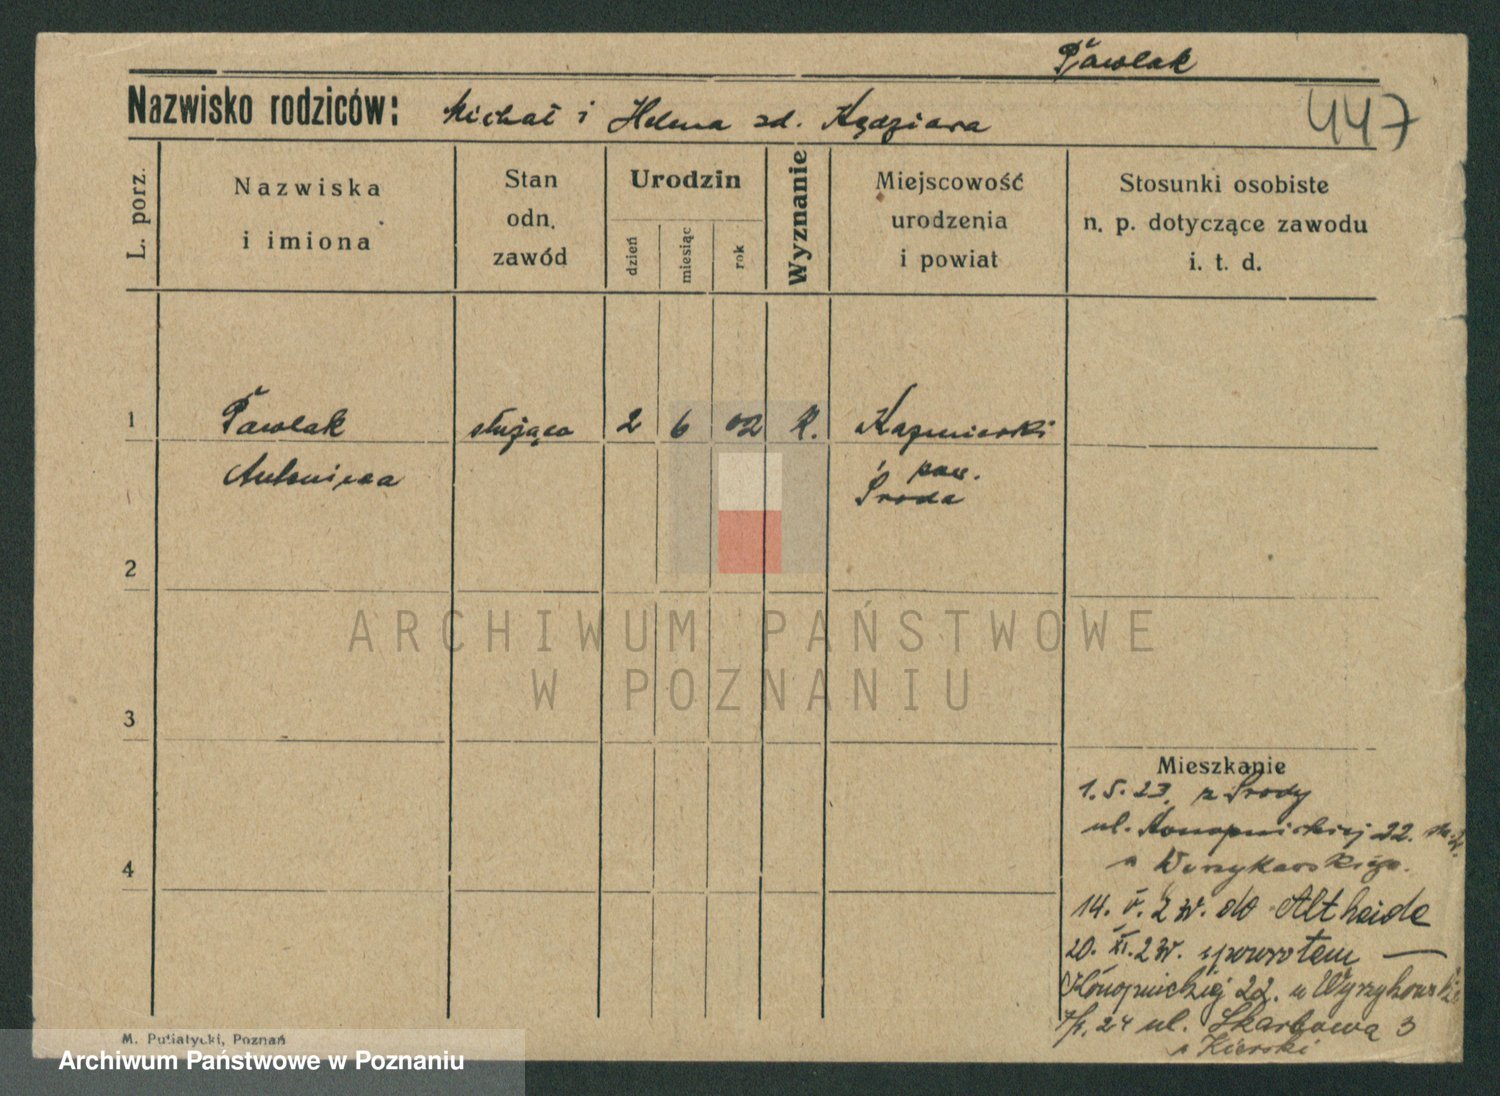 Pawlak
Nazwisko rodziców: Michał i Helena zd. Kądziora
447
L. porz.
Nazwiska
i imiona
Stan
odn.
zawód
Urodzin
dzień
miesiąc
rok
Wyznanie
Miejscowość
urodzenia
i powiat
Stosunki osobiste
n. p. dotyczące zawodu
i. t. d.
1
Pawlak
służąca
2
6
02
K.
Kaźmierski
Antonina
pow.
Środa
2
3
4
ARCHIWUM PAŃSTWOWE
W POZNANIU
Mieszkanie
1.5.23. z Środy
ul. Konopnickiej 22.
u Wyrzykowskiego.
14. V. do Altheide
20. XI. spowrotem —
Konopnickiej 22. u
24 ul. Skarbowa 3
u Kierski
M. Putiatycki, Poznań
Archiwum Państwowe w Poznaniu